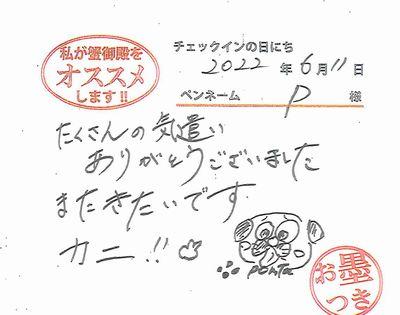 私が蟹御殿を
オススメ
します!!
チェックインの日にち
2022年6月11日
ペンネーム P 様
たくさんの気遣い
ありがとうございました
またきたいです
カニ!!
PONTA
お墨つき